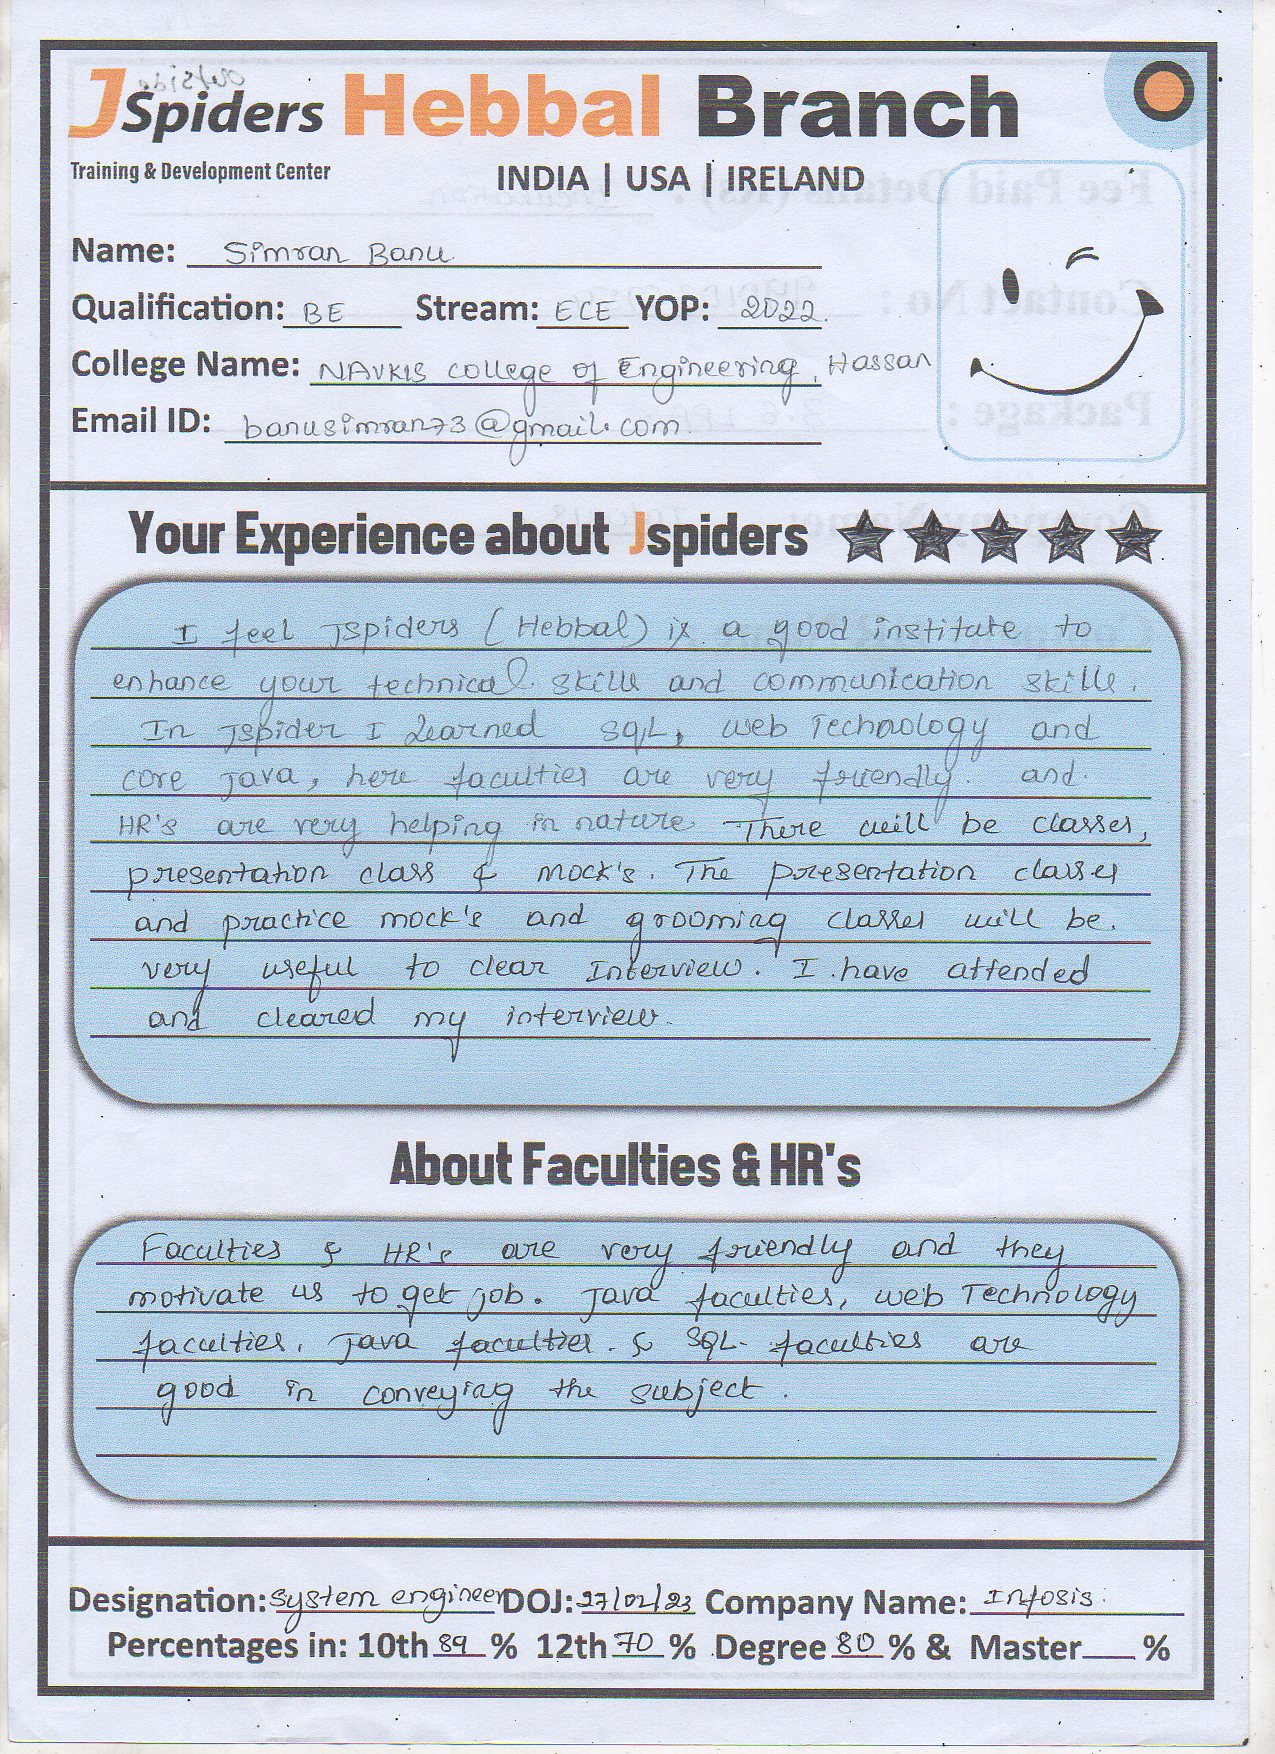 JSpiders Hebbal Branch
Training & Development Center
INDIA | USA | IRELAND
Name: Simran Banu
Qualification: BE Stream: ECE YOP: 2022
College Name: NAVKIS College of Engineering, Hassan
Email ID: banusimran73@gmail.com
Your Experience about Jspiders
I feel Jspiders (Hebbal) is a good institute to
enhance your technical skills and communication skills.
In Jspider I learned SQL, web Technology and
core Java, here faculties are very friendly. and
HR's are very helping in nature. There will be classes,
presentation class & mock's. The presentation classes
and practice mock's and grooming classes will be.
very useful to clear Interview. I have attended
and cleared my interview.
About Faculties & HR's
Faculties & HR's are very friendly and they
motivate us to get job. Java faculties, web Technology
faculties, Java faculties. & SQL faculties are
good in conveying the subject.
Designation: System engineer DOJ: 27/02/23 Company Name: Infosis
Percentages in: 10th 89 % 12th 70 % Degree 80 % & Master %